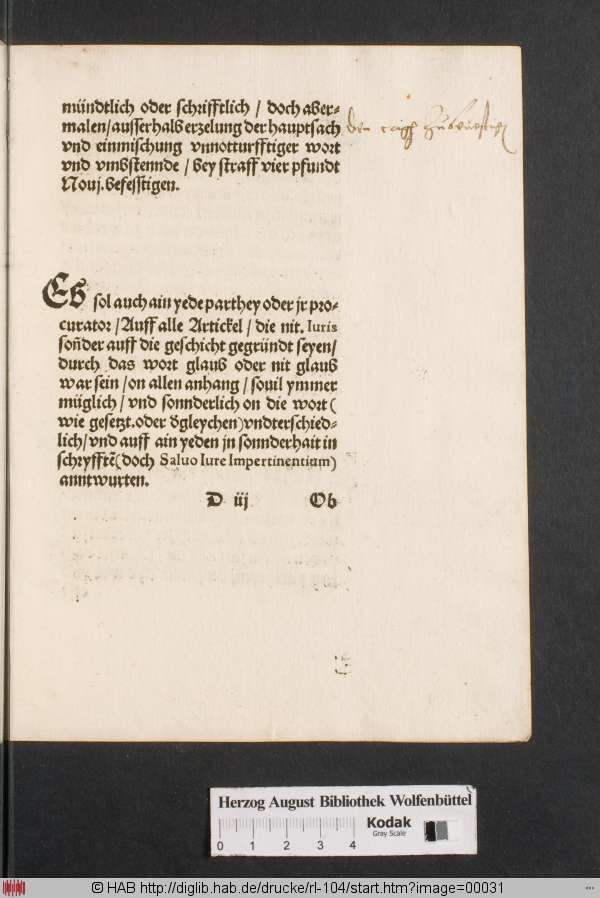 mündtlich oder schrifftlich / doch aber-
malen / ausserhalb erzelung der hauptsach
vnd einmischung vnnotturfftiger wort
vnd vmbstennde / bey straff vier pfundt
Nouj. befesstigen.
Es sol auch ain yede parthey oder jr pro-
curator / Auff alle Artickel / die nit. Iuris
sonder auff die geschicht gegründt seyen /
durch das wort glaub oder nit glaub
war sein / on allen anhang / souil ymmer
müglich / vnd sonnderlich on die wort (
wie gesetzt. oder dgleychen) vndterschied-
lich / vnd auff ain yeden jn sonnderhait in
schryfftē (doch Saluo Iure Impertinentium)
anntwurten.
D iij Ob
Herzog August Bibliothek Wolfenbüttel
Kodak
Gray Scale
0 1 2 3 4
© HAB http://diglib.hab.de/drucke/rl-104/start.htm?image=00031